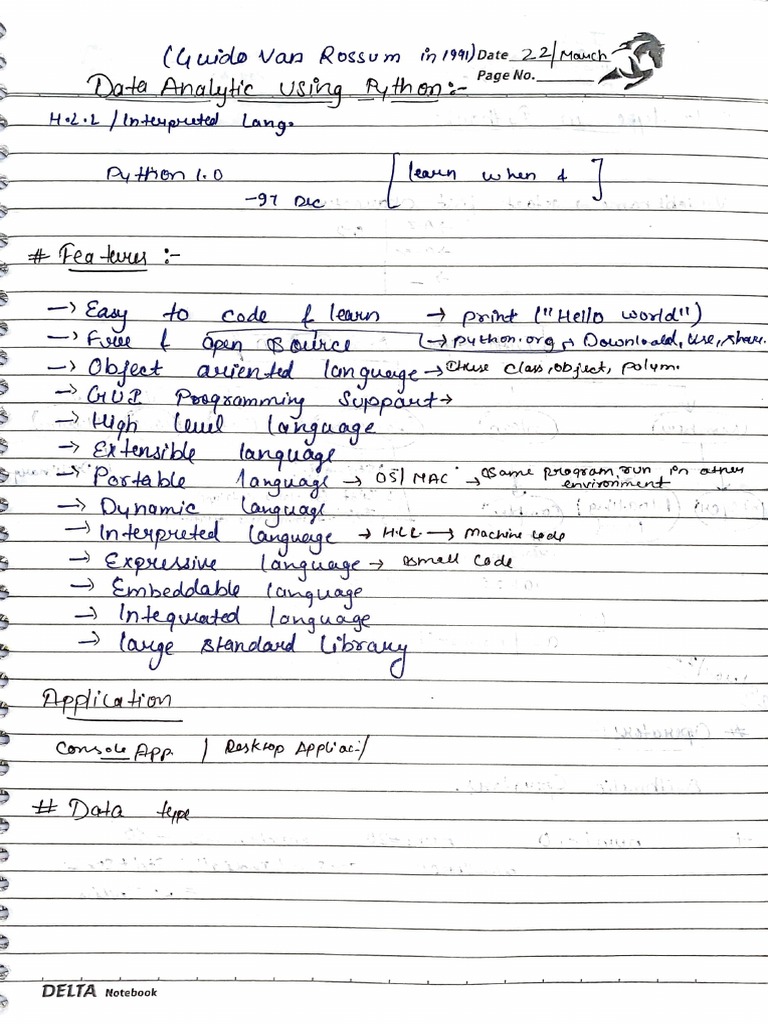 (Guido Van Rossum in 1991) Date 22/March
Page No.
Data Analytic using Python:-
H.L.L / Interpreted Lang.
Python 1.0 [learn when & ]
-97 Dec
# Features :-
→ Easy to code & learn → print ("Hello world")
→ Free & open source → python.org, → Download, use, share.
→ Object ariented language → class, object, polym.
→ GUI Programming Support →
→ High level language
→ Extensible language
→ Portable language → OS/MAC → Same program run in other
environment
→ Dynamic language
→ Interpreted language → H.L.L. → Machine code
→ Expressive language → small code
→ Embeddable language
→ Integrated language
→ large standard library
Application
Console App. / Desktop Appliac:/
# Data type
DELTA Notebook